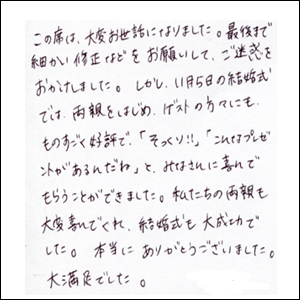 この度は、大変お世話になりました。最後まで
細かい修正などをお願いして、ご迷惑を
おかけしました。しかし、11月5日の結婚式
では、両親をはじめ、ゲストの方々にも
ものすごく好評で、「そっくり!!」「こんなプレゼ
ントがあるんだね」と、みなさんに喜んで
もらうことができました。私たちの両親も
大変喜んでくれ、結婚式も大成功で
した。本当にありがとうございました。
大満足でした。